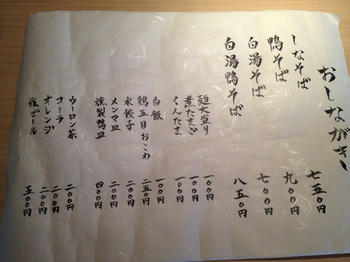 おしながき
しなそば 七五〇円
鴨そば 九〇〇円
白湯そば 七〇〇円
白湯鴨そば 八五〇円
麺大盛り 一〇〇円
煮たまご 一〇〇円
くんたま 一〇〇円
白飯 一〇〇円
鶏五目おこわ 二五〇円
水餃子 二〇〇円
メンマ皿 二〇〇円
燻製鴨皿 四〇〇円
ウーロン茶 二〇〇円
コーラ 二〇〇円
オレンジ 二〇〇円
瓶ビール 五〇〇円